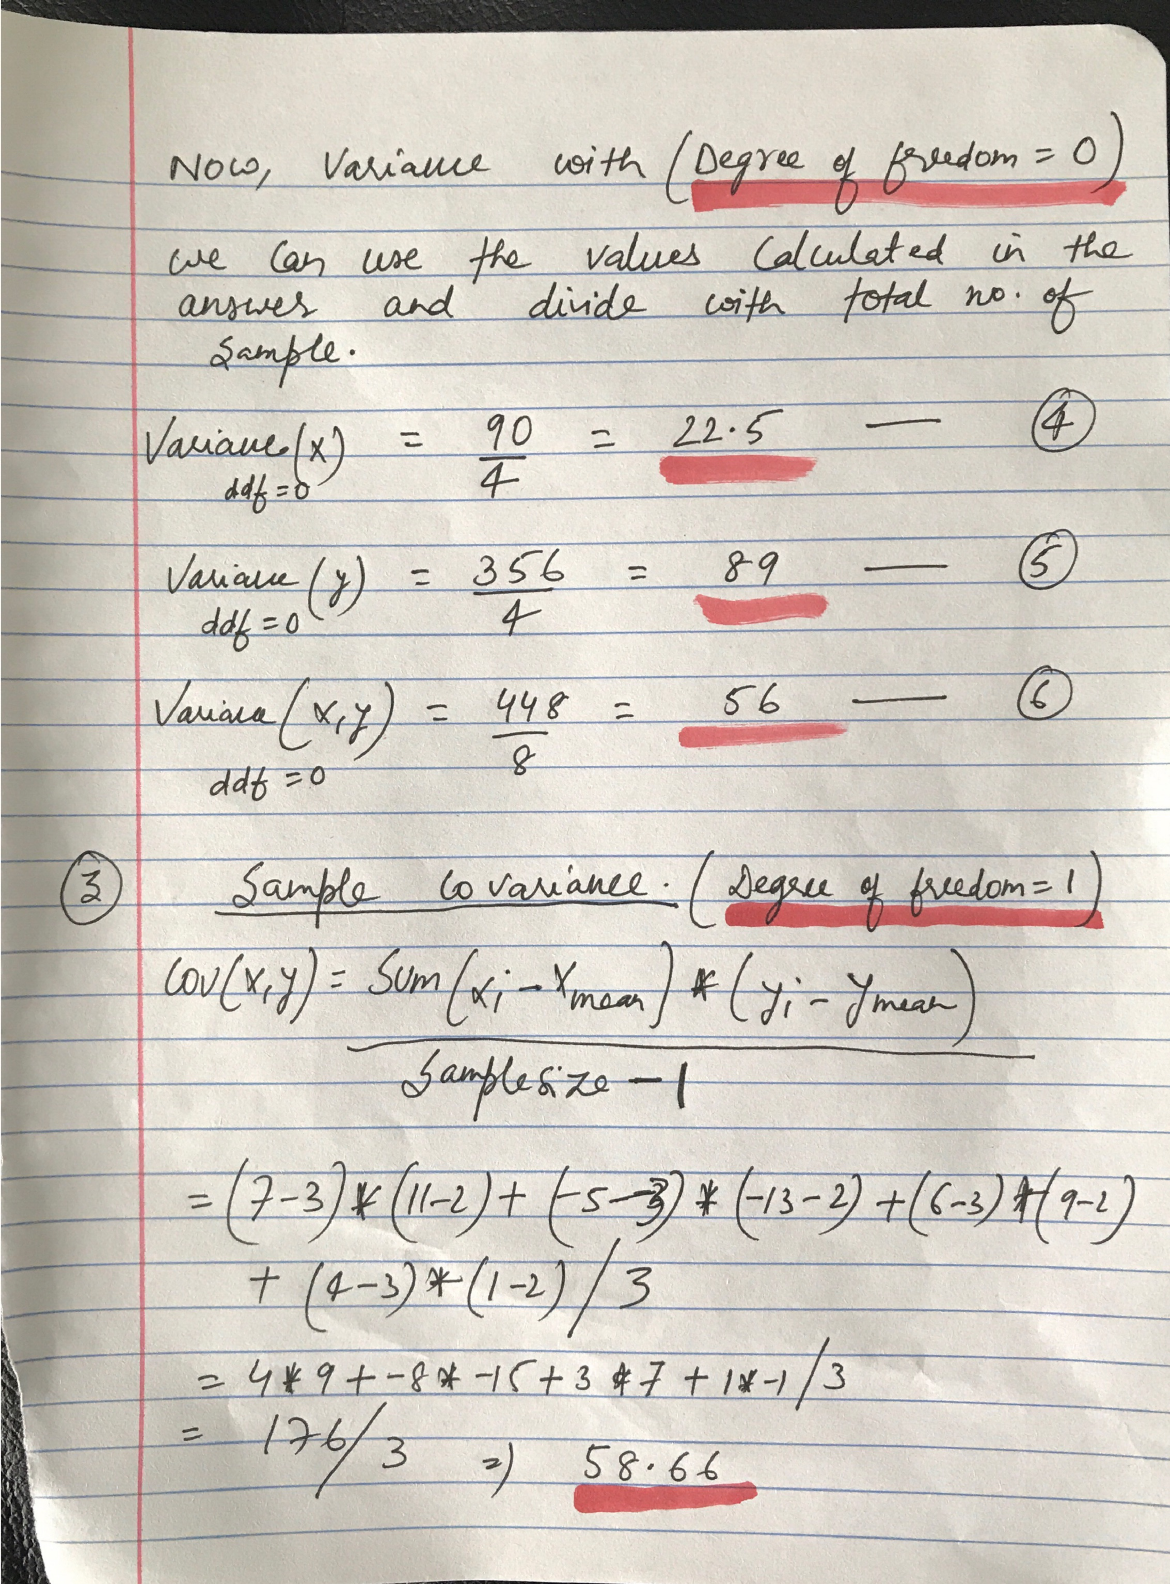 Now, Variance with (Degree of freedom = 0)
we can use the values calculated in the
answer and divide with total no. of
Sample.
Variance(x) = 90/4 = 22.5 — ④
ddf = 0
Variance(y) = 356/4 = 89 — ⑤
ddf = 0
Variance(x,y) = 448/8 = 56 — ⑥
ddf = 0
③ Sample Covariance. (Degree of freedom = 1)
Cov(x,y) = Sum(xi - Xmean) * (yi - Ymean)
Sample size - 1
= (7-3)*(11-2) + (-5-3)*(-13-2) + (6-3)*(9-2)
+ (4-3)*(1-2)/3
= 4*9 + -8*-15 + 3*7 + 1*-1/3
= 176/3 => 58.66